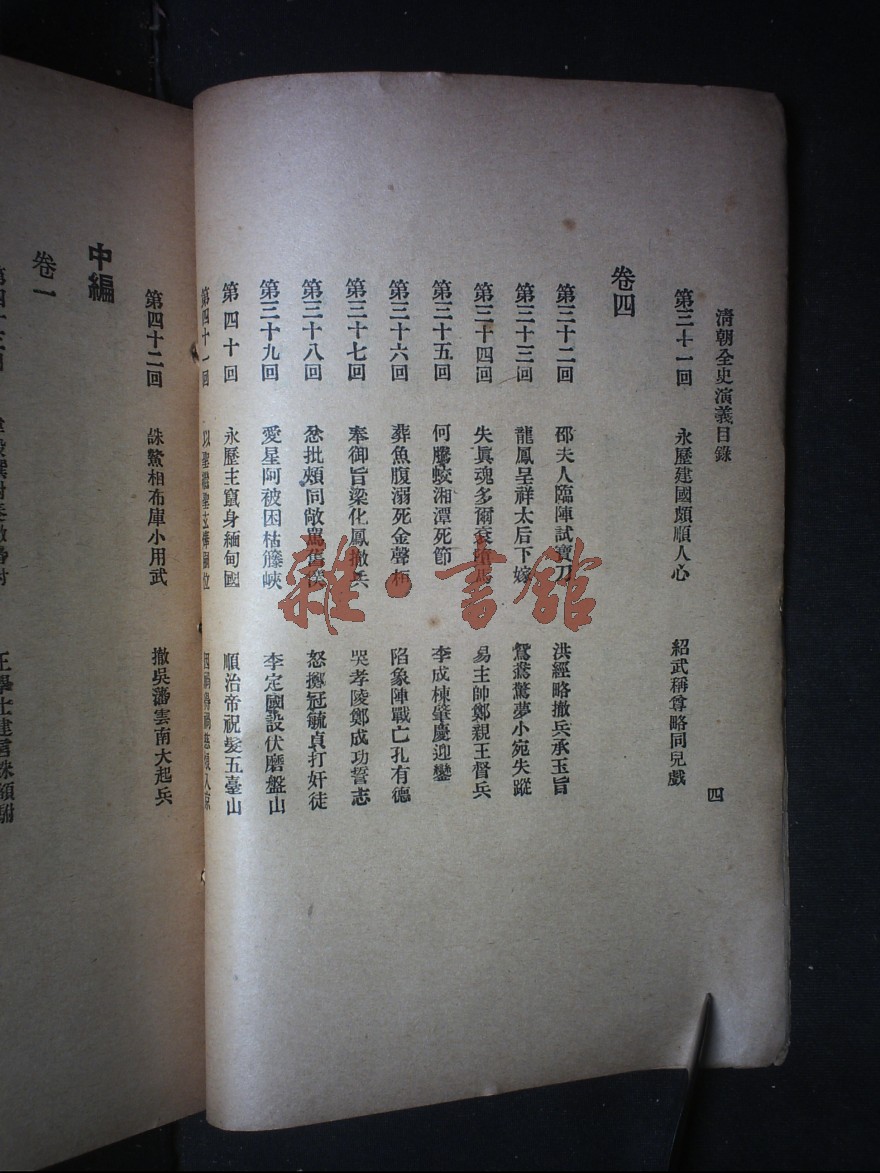 清朝全史演義目錄
四
第三十一回 永歷建國頗順人心 紹武稱尊略同兒戲
卷四
第三十二回 邵夫人臨陣試寶刀 洪經略撤兵承玉旨
第三十三回 龍鳳呈祥太后下嫁 鴛鴦驚夢小宛失蹤
第三十四回 失眞魂多爾袞墮馬 易主帥鄭親王督兵
第三十五回 何騰蛟湘潭死節 李成棟肇慶迎鑾
第三十六回 葬魚腹溺死金聲桓 陷象陣戰亡孔有德
第三十七回 奉御旨梁化鳳撤兵 哭孝陵鄭成功誓志
第三十八回 忿批頰同敞罵舊僕 怒擲冠毓貞打奸徒
第三十九回 愛星阿被困枯籐峽 李定國設伏磨盤山
第四十回 永歷主竄身緬甸國 順治帝祝髮五臺山
第四十一回 以聖繼聖玄
第四十二回 誅鰲相布庫小用武 撤吳藩雲南大起兵
中編
卷一
雜·書館